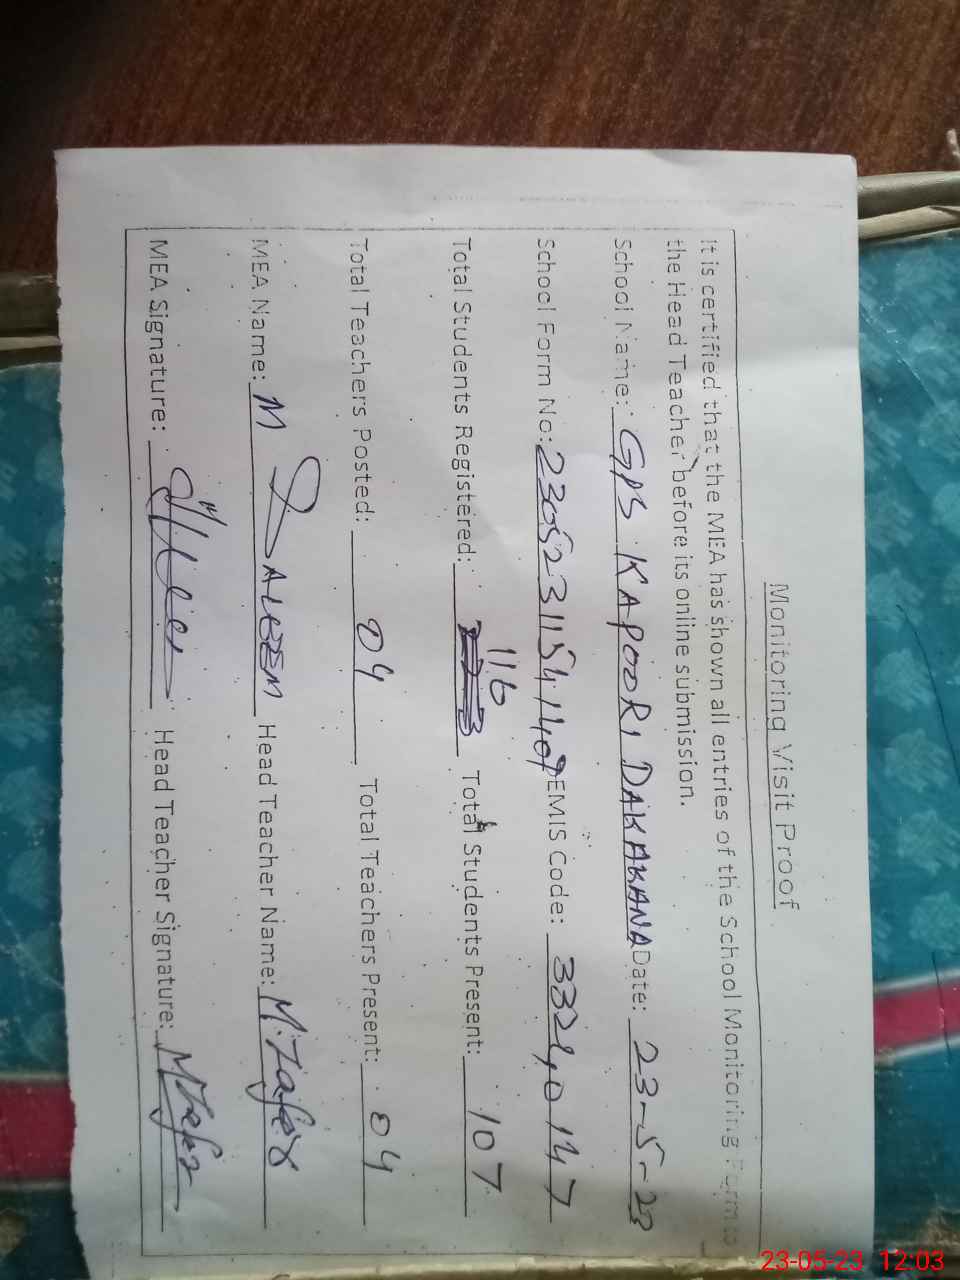 Monitoring Visit Proof
It is certified that the MEA has shown all entries of the School Monitoring Forms to
the Head Teacher before its online submission.
School Name: GPS KAPOORI DAKAKHANA Date: 23-5-23
School Form No: EMIS Code:
Total Students Registered: 116 Total Students Present: 107
Total Teachers Posted: 04 Total Teachers Present: 04
MEA Name: M ALEEM Head Teacher Name: M. Zafar
MEA Signature: Head Teacher Signature: MZafar
23-05-23 12:03